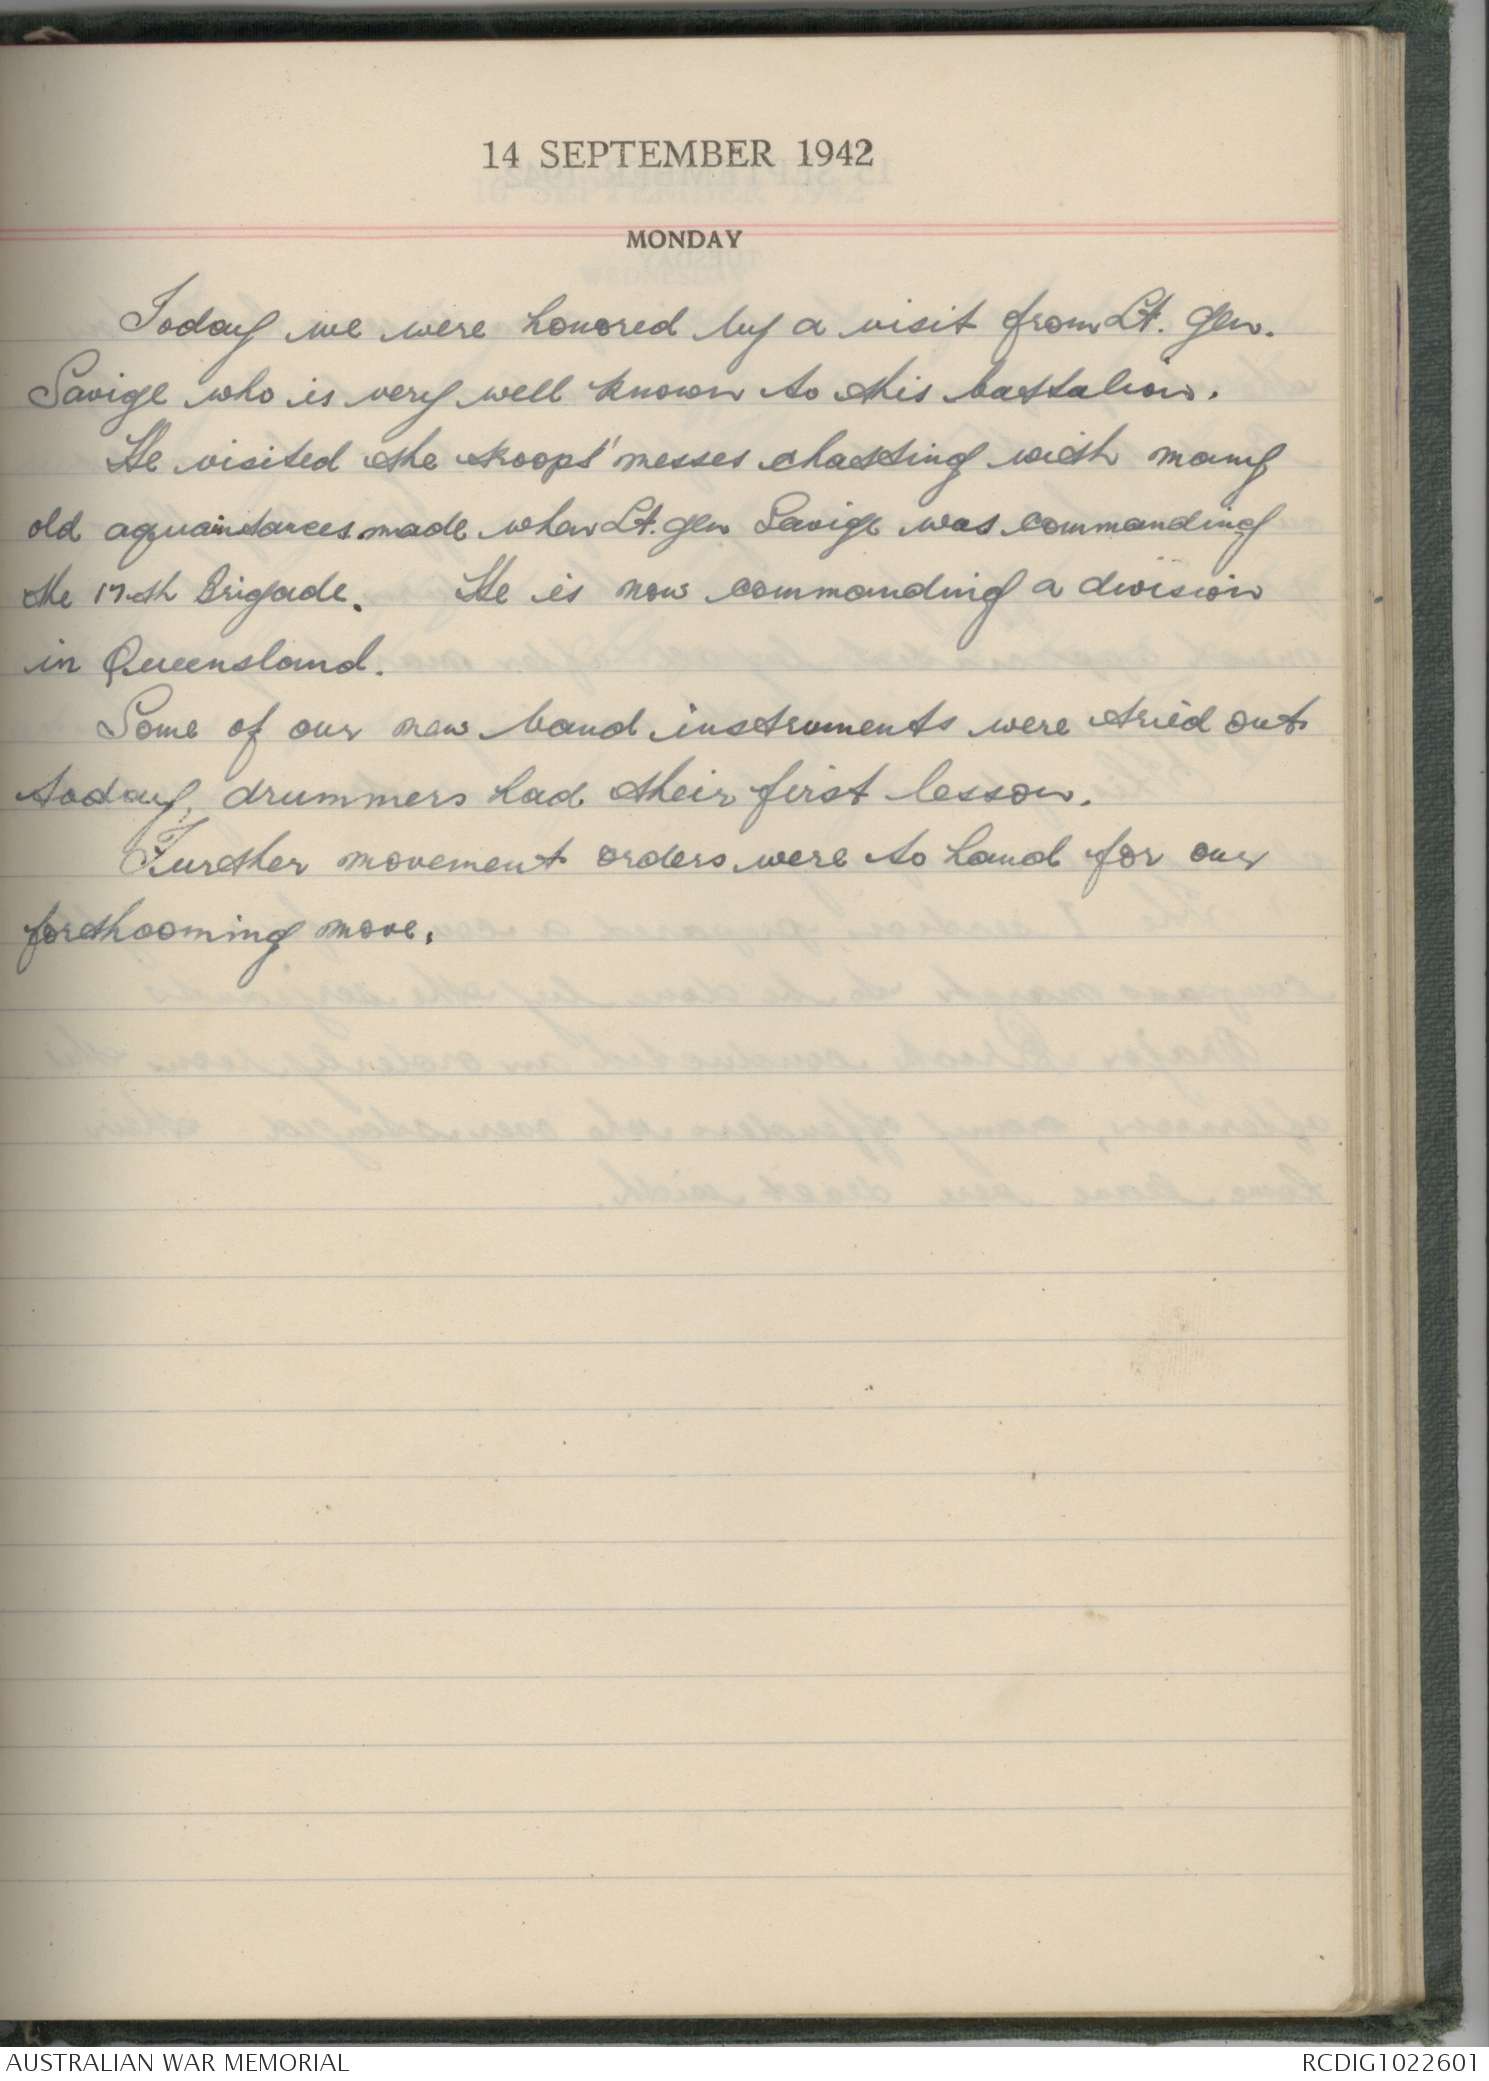 14 SEPTEMBER 1942
MONDAY
Today we were honored by a visit from Lt. Gen.
Savige who is very well known to this battalion.
He visited the troops' messes chatting with many
old aquaintances made when Lt. Gen Savige was commanding
the 17th Brigade. He is now commanding a division
in Queensland.
Some of our new band instruments were tried out
today, drummers had their first lesson.
Further movement orders were to hand for our
forthcoming move.
AUSTRALIAN WAR MEMORIAL
RCDIG1022601